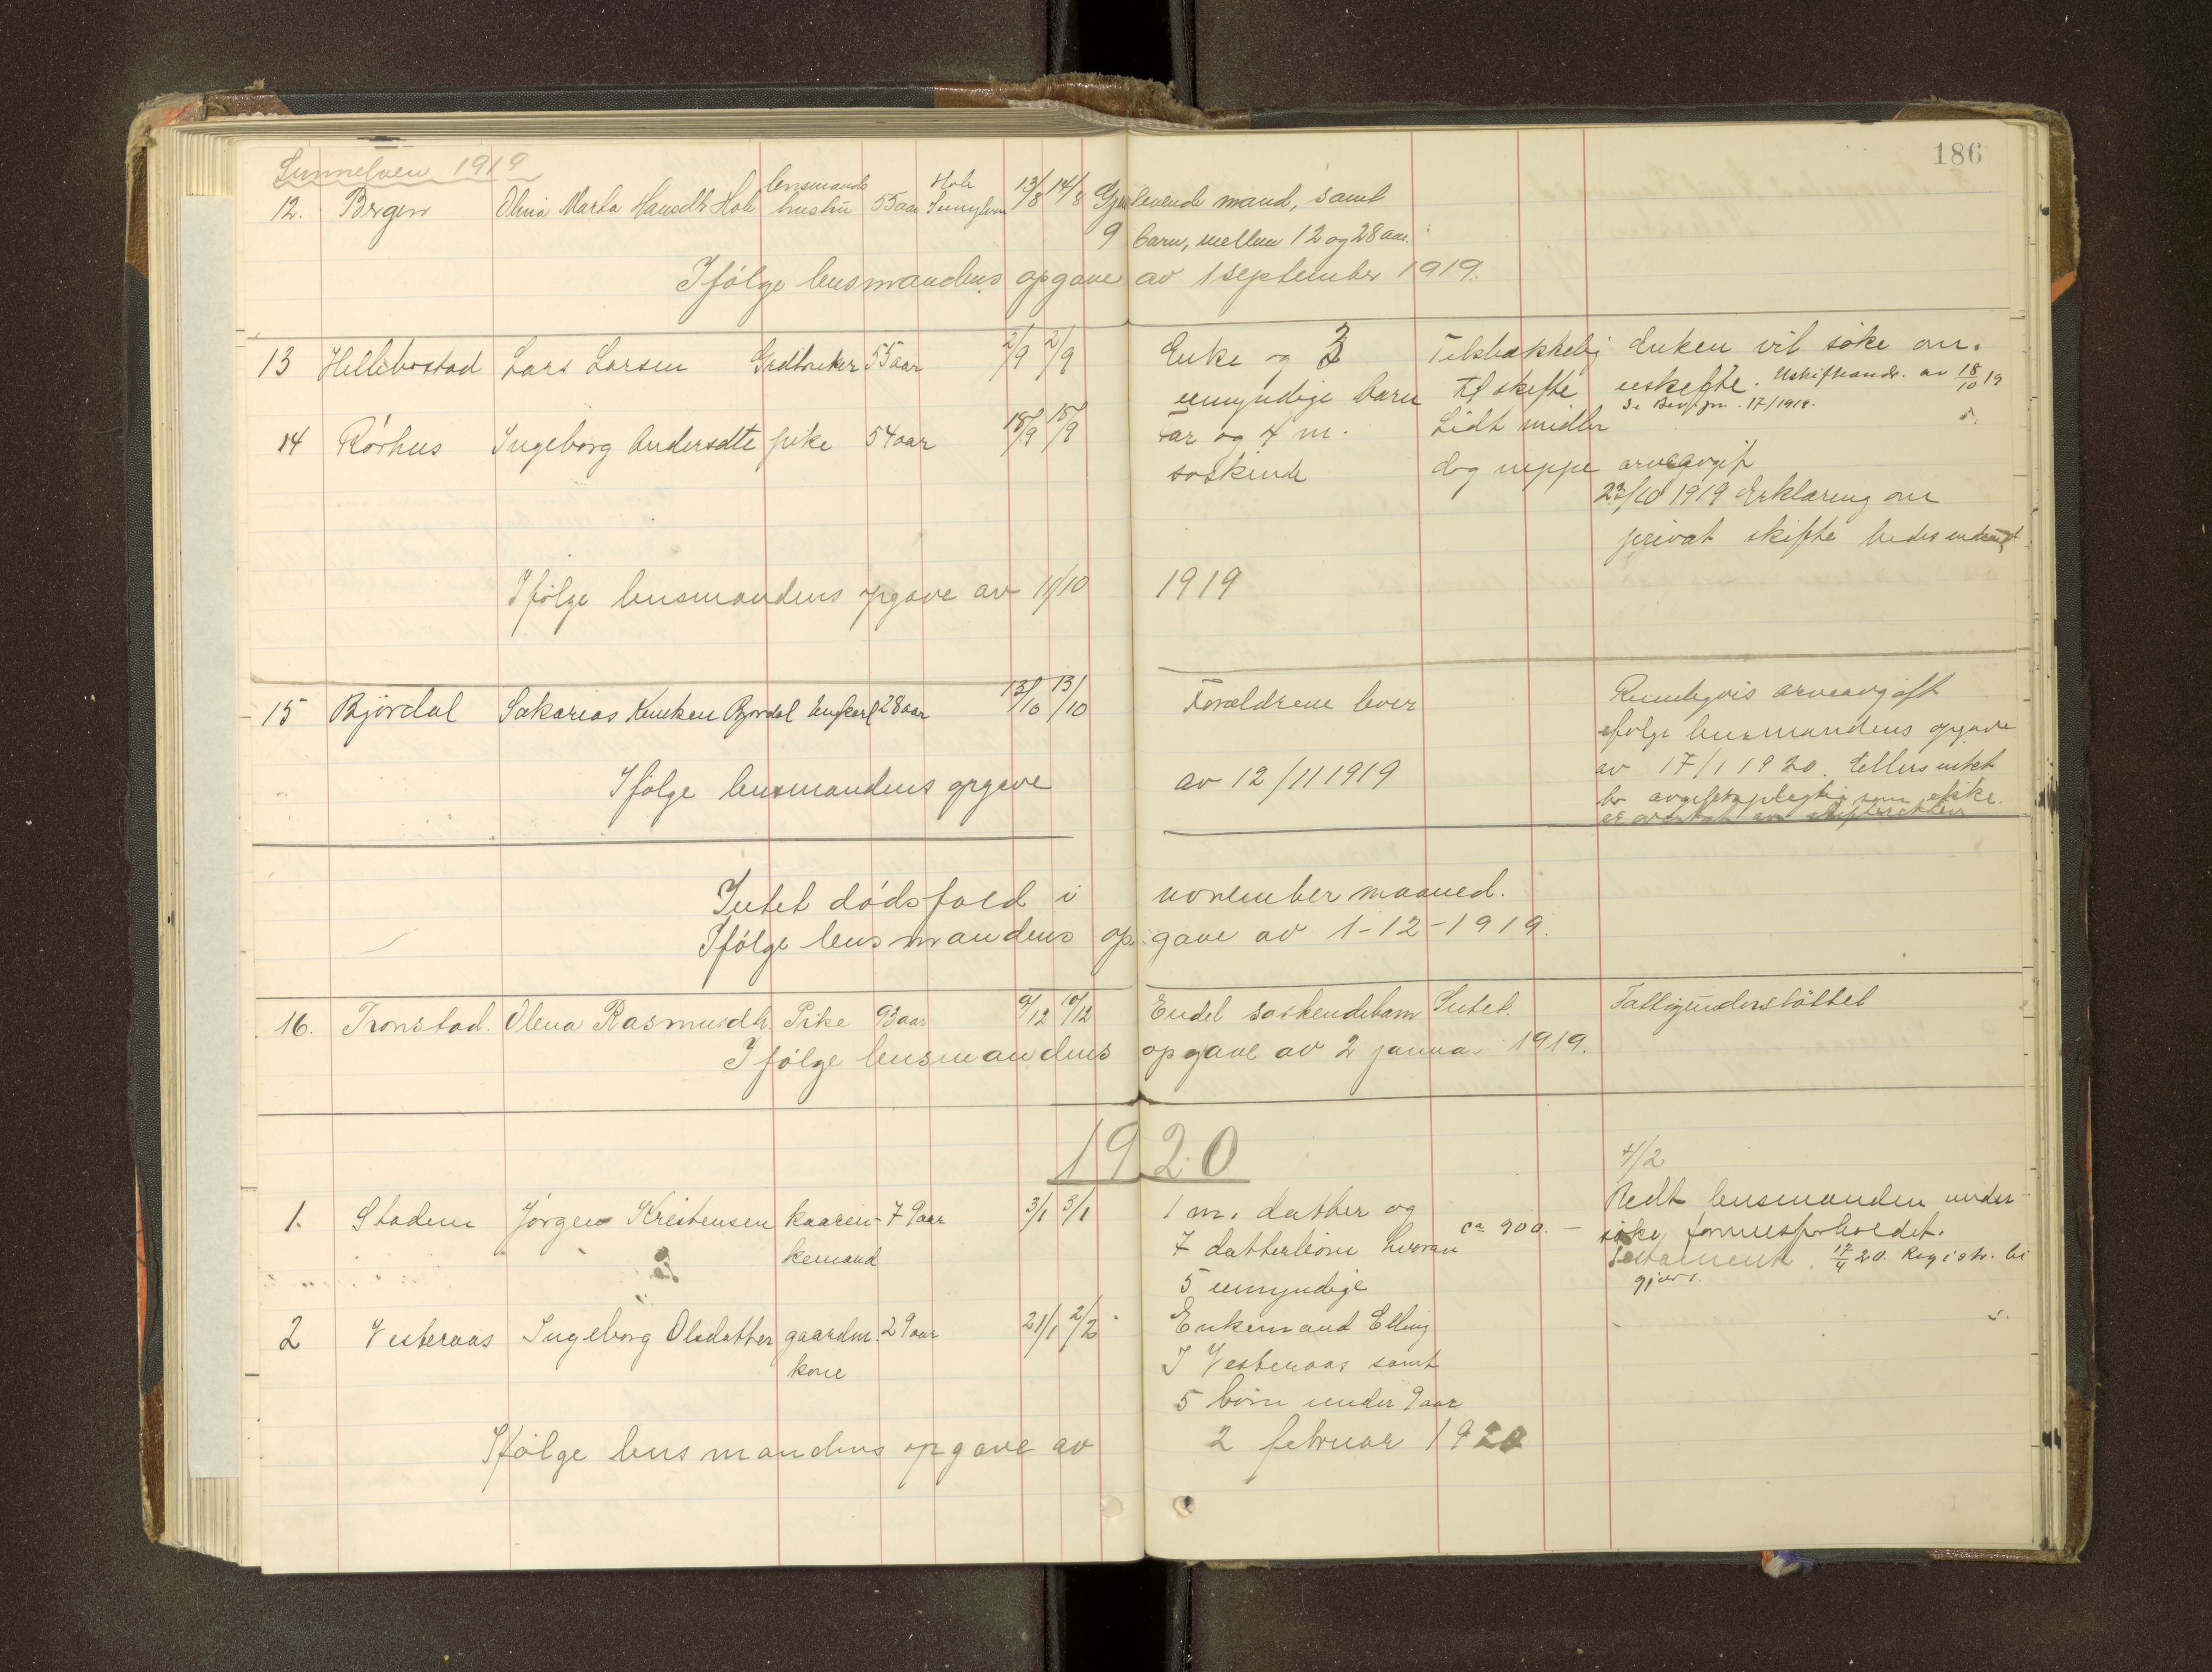 186
Sunnelven 1919
lensmands Hole
12. Bergen Olina Marta Hansdtr Hole hustru 55 aar Sunnylven 13/8 14/8 Gjenlevende mand, samt
9 barn, mellem 12 og 28 aar.
Ifølge lensmandens opgave av 1 september 1919.
13 Hellebostad Lars Larsen Gardbruker 55 aar 2/9 2/9 Enke og 3 Tilstrækkelig Enken vil søke om
umyndige barn til skifte uskifte. Uskifteandr. av 18/10 19
14 Rørhus Ingeborg Andersdtr pike 54 aar 15/9 15/9 Far og 4 m. Lidt midler
søskende dog neppe arveavgift
23/10 1919 Erklæring om
privat skifte bedes indsendt
Ifølge lensmandens opgave av 11/10 1919
15 Bjørdal Sakarias Knutsen Bjørdal Ungkarl 28 aar 13/10 13/10 Forældrene lever Rimeligvis arveavgift
ifølge lensmandens opgave
av 17/1 1920. Ellers intet
Ifølge lensmandens opgave av 12/11 1919
bo avgiftspligtig som ikke
er overtat av skifteretten
Intet dødsfald i november maaned.
Ifølge lensmandens opgave av 1-12-1919.
16. Tronstad. Olena Rasmusdtr. Pike 93 aar 9/12 10/12 Endel søskendebarn Intet. Fattigunderstöttet
Ifølge lensmandens opgave av 2 januar 1919.
1920
4/2
1. Stadem Jørgen Kristensen kaaren- 79 aar 3/1 3/1 1 m. datter og ca 900.- Bedt lensmanden under
kemand 7 datterbörn hvorav søke formuesforholdet.
5 umyndige Testament. 17/4 20. Registr. bl
gjort.
2 Vesteraas Ingeborg Olsdatter gaardm. 29 aar 21/1 2/2 Enkemand Elling
kone I Vesteraas samt
5 börn under 9 aar
Ifølge lensmandens opgave av 2 februar 1920